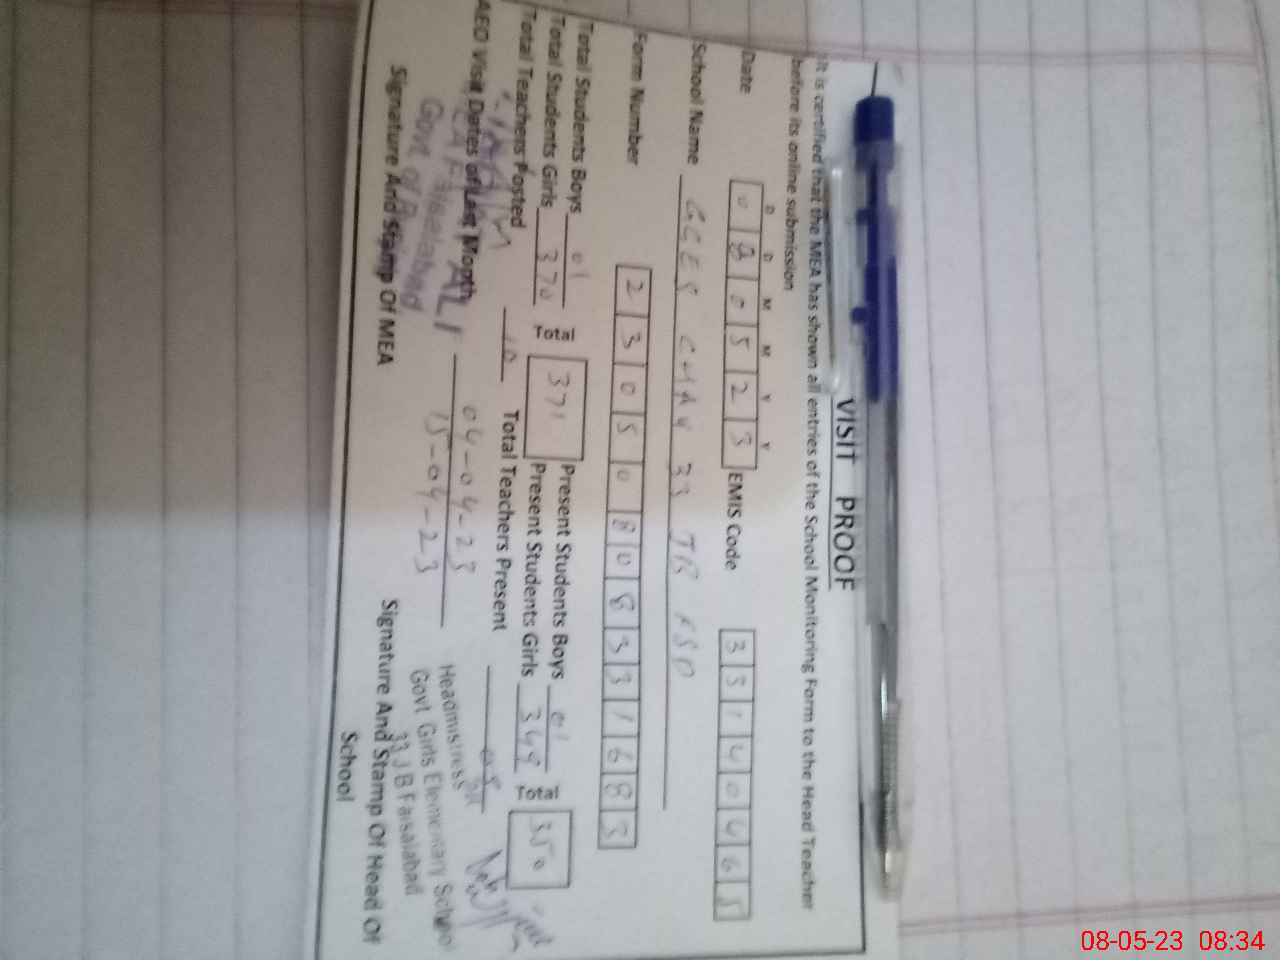 VISIT PROOF
It is certified that the MEA has shown all entries of the School Monitoring Form to the Head Teacher
before its online submission
D D M M Y Y
Date 0 8 0 5 2 3 EMIS Code 3 3 1 4 0 4 6 5
School Name GGES CHAK 33 JB FSD
Form Number 2 3 0 5 0 8 0 8 3 3 1 6 8 3
Total Students Boys 01 Present Students Boys 01
Total Students Girls 370 371 Present Students Girls 349 350
Total Teachers Posted 10 Total Teachers Present 09
AEO Visit Dates of Last Month 04-04-23
15-04-23
Govt of Faisalabad
Headmistress
Govt Girls Elementary School
33 JB Faisalabad
Signature And Stamp Of MEA Signature And Stamp Of Head Of
School
08-05-23 08:34